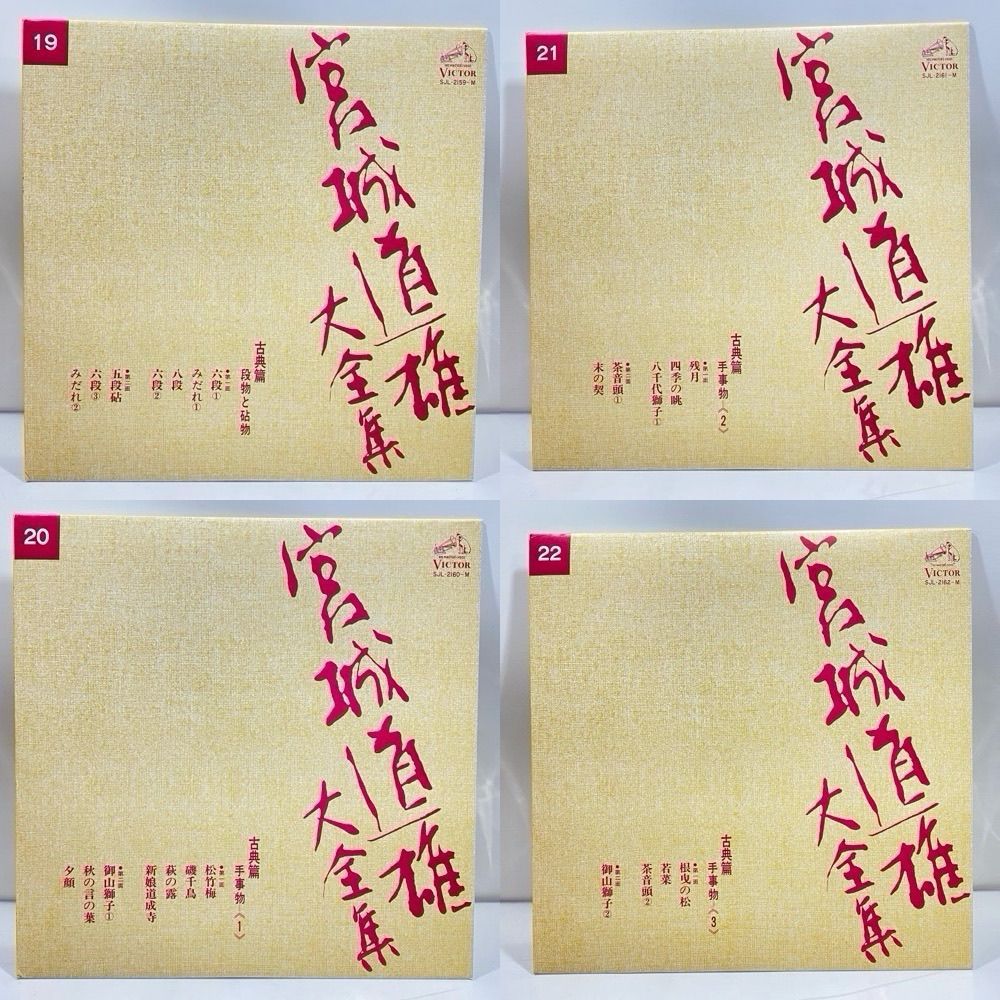 19
VICTOR
SJL-2159-M
宮城道雄
大全集
古典篇
段物と砧物
●第一面
六段①
みだれ①
八段
六段②
●第二面
五段砧
六段③
みだれ②
21
VICTOR
SJL-2161-M
宮城道雄
大全集
古典篇
手事物《2》
●第一面
残月
四季の眺
八千代獅子①
●第二面
茶音頭①
末の契
20
VICTOR
SJL-2160-M
宮城道雄
大全集
古典篇
手事物《1》
●第一面
松竹梅
磯千鳥
萩の露
新娘道成寺
●第二面
御山獅子①
秋の言の葉
夕顔
22
VICTOR
SJL-2162-M
宮城道雄
大全集
古典篇
手事物《3》
●第一面
根曳の松
若菜
茶音頭②
●第二面
御山獅子②